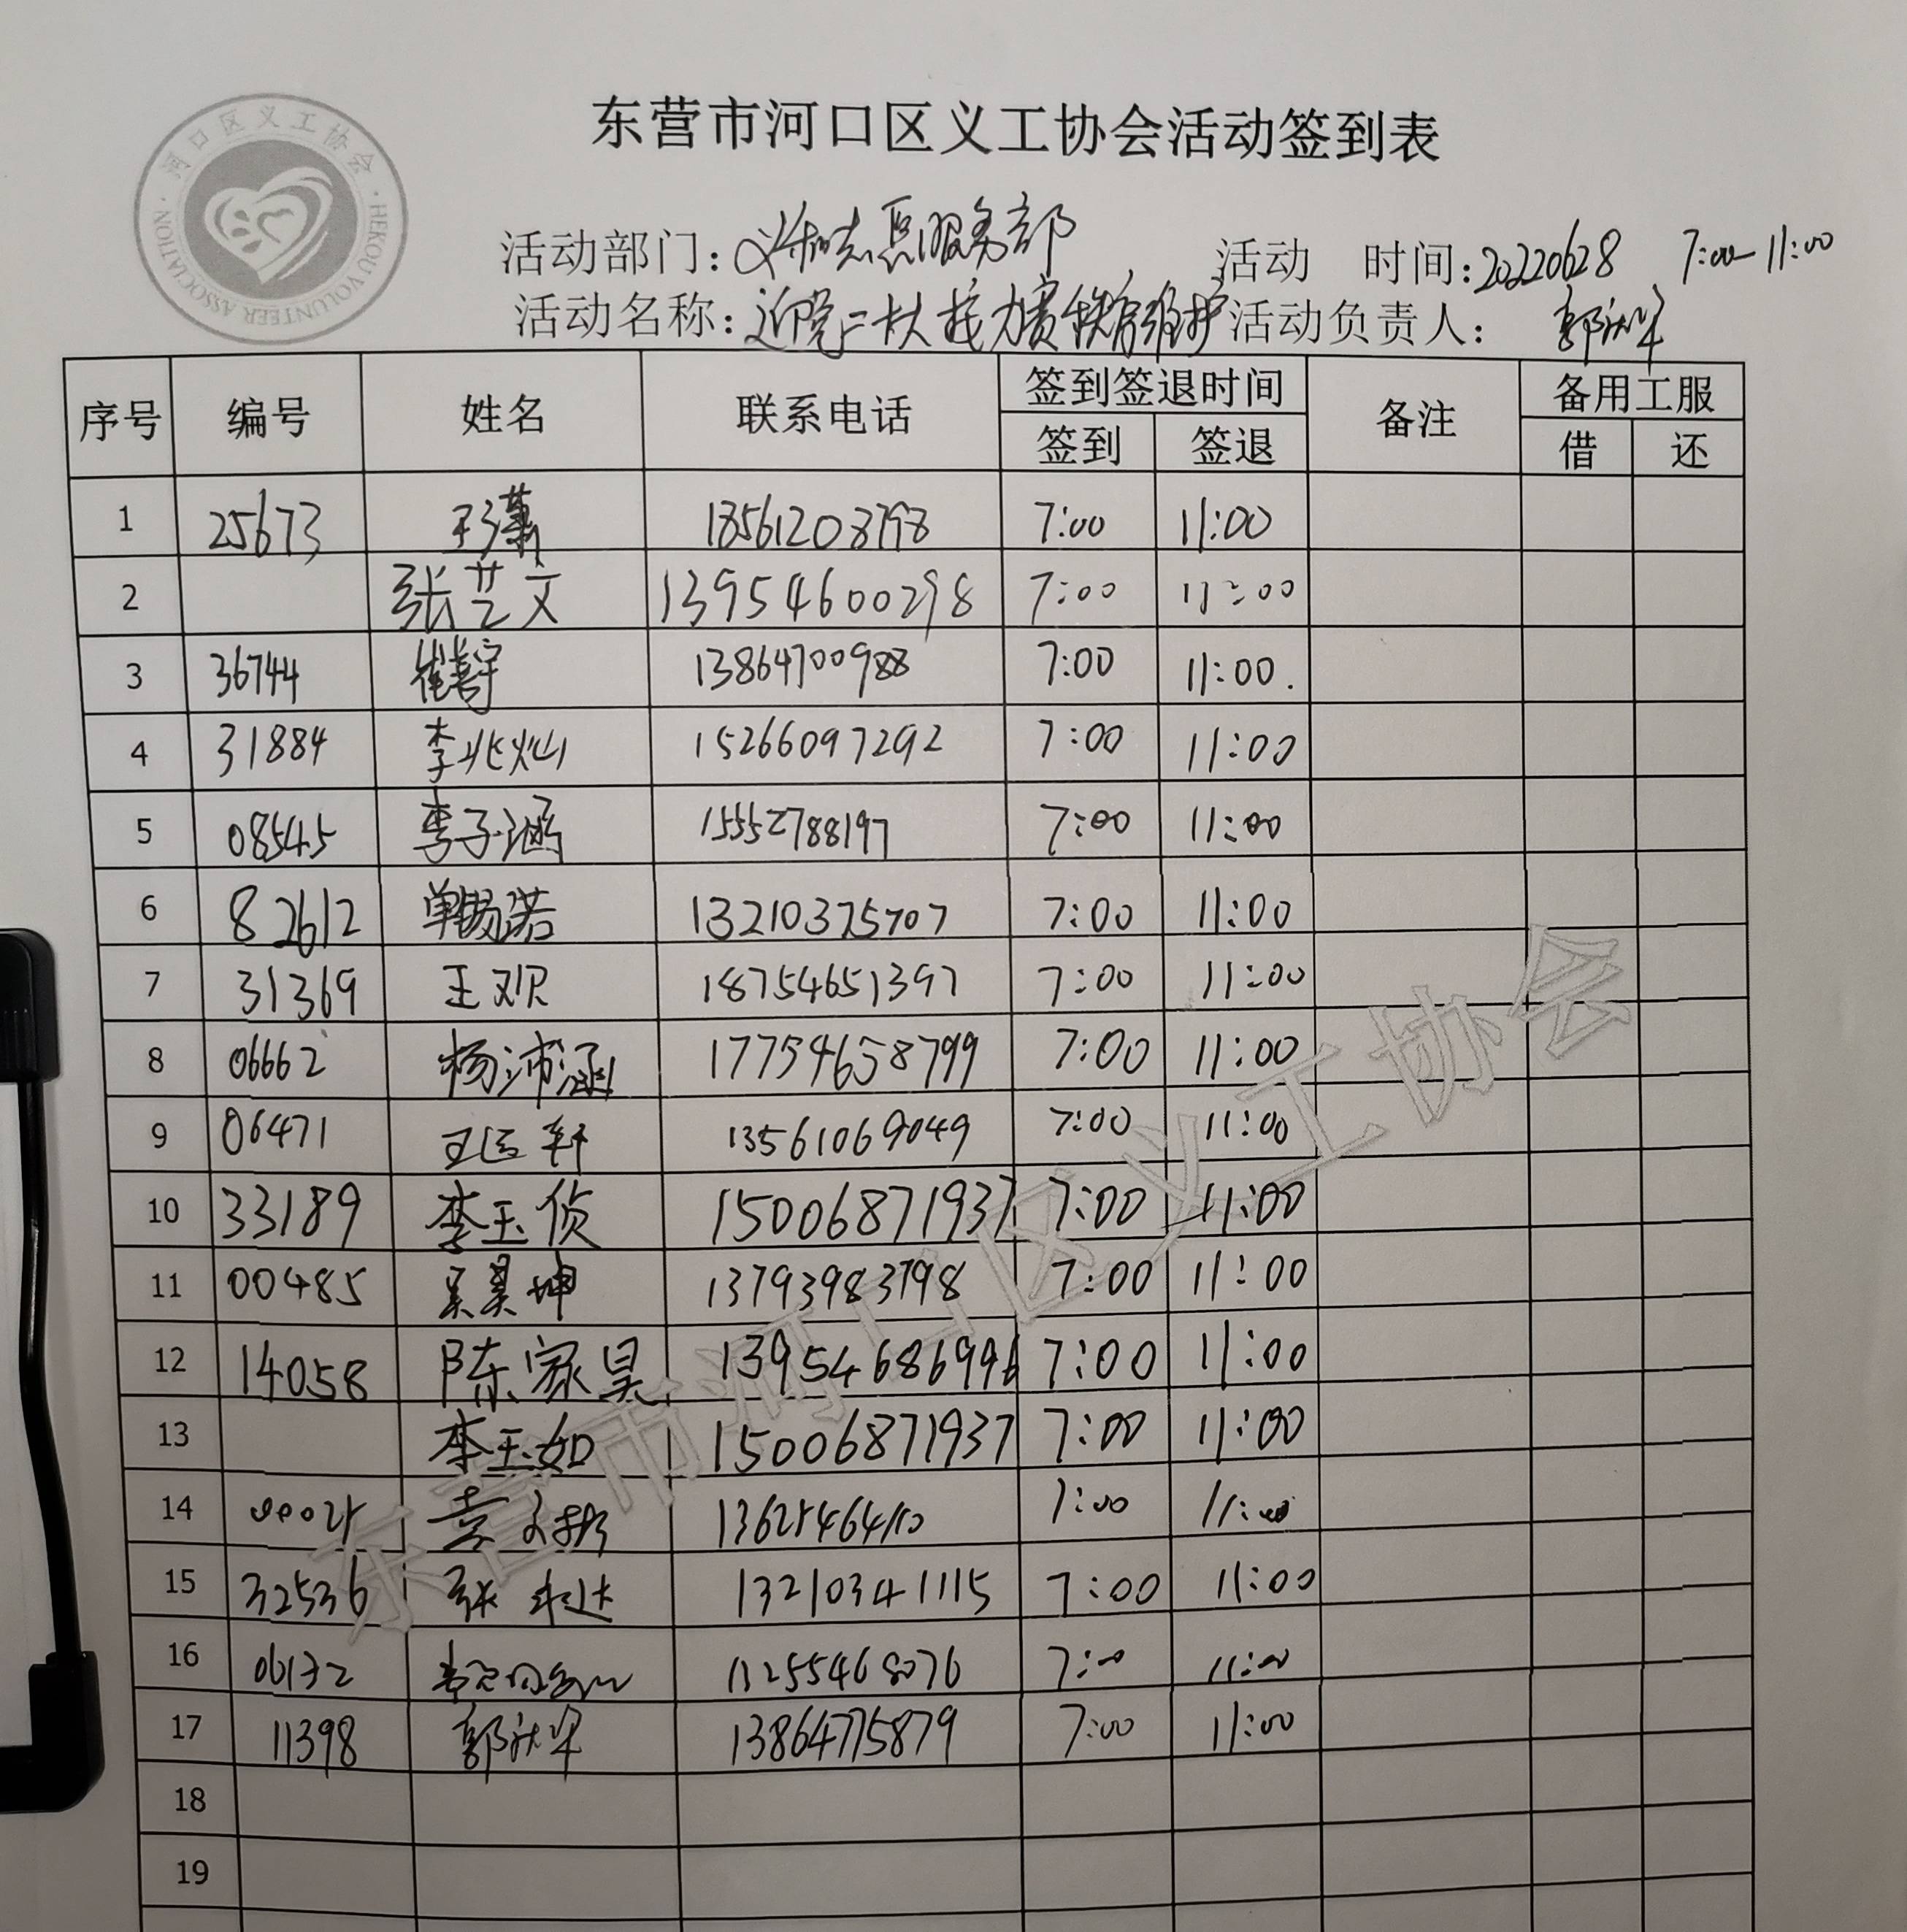 东营市河口区义工协会活动签到表
河口区义工协会
HEKOU VOLUNTEER ASSOCIATION
活动部门: 义和志愿服务部 活动 时间: 20220628 7:00-11:00
活动名称: 迎党二十大接力赛秩序维护 活动负责人:
序号 编号 姓名 联系电话 签到签退时间 备注 备用工服
签到 签退 借 还
1 25673 18561208798 7:00 11:00
2 张艺文 13954600298 7:00 11:00
3 36744 崔善宇 13864700988 7:00 11:00.
4 31884 李兆灿 15266097292 7:00 11:00
5 08545 李子涵 15552788197 7:00 11:00
6 82612 单畅诺 13210375707 7:00 11:00
7 31369 王欢 18754651397 7:00 11:00
8 06662 杨沛涵 17754658799 7:00 11:00
9 06471 13561069049 7:00 11:00
10 33189 李玉侦 15006871937 7:00 11:00
11 00485 吴昊坤 13793983798 7:00 11:00
12 14058 陈家昊 13954686996 7:00 11:00
13 李玉如 15006871937 7:00 11:00
14 7:00 11:00
15 32536 张 13210341115 7:00 11:00
16 06132 13255468076 7:00 11:00
17 11398 13864775879 7:00 11:00
18
19
东营市河口区义工协会